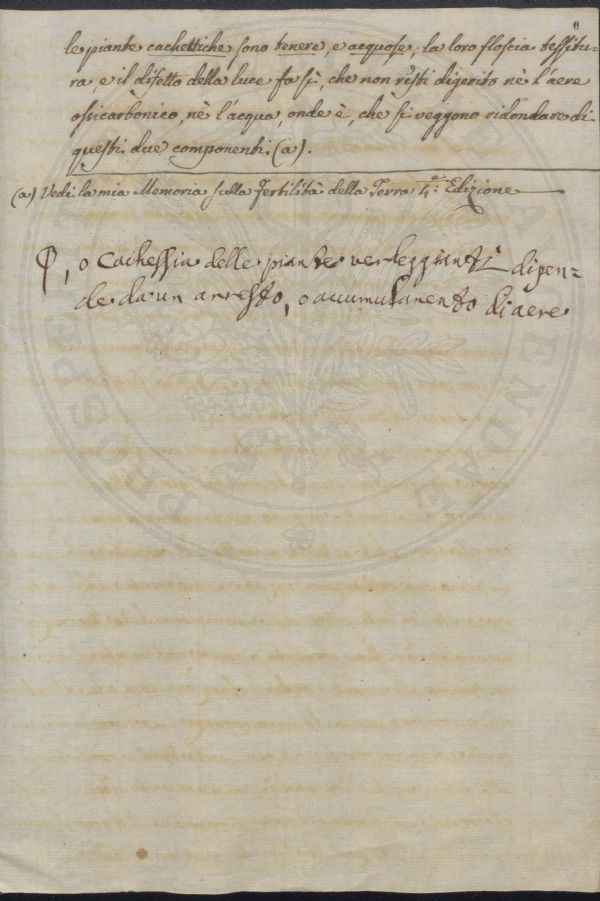 le piante cachettiche sono tenere, e acquose; la loro floscia tessitu-
ra, e il difetto della luce fa sì, che non resti digerito nè l'aere
ossicarbonico, nè l'acqua, onde è, che si veggono ridondare di
questi due componenti. (a).
(a) Vedi la mia Memoria sulla Fertilità della Terra 4.ª Edizione
, o Cachessia delle piante verdeggianti dipen=
de da un arresto, o accumulamento di aere
PROSPE